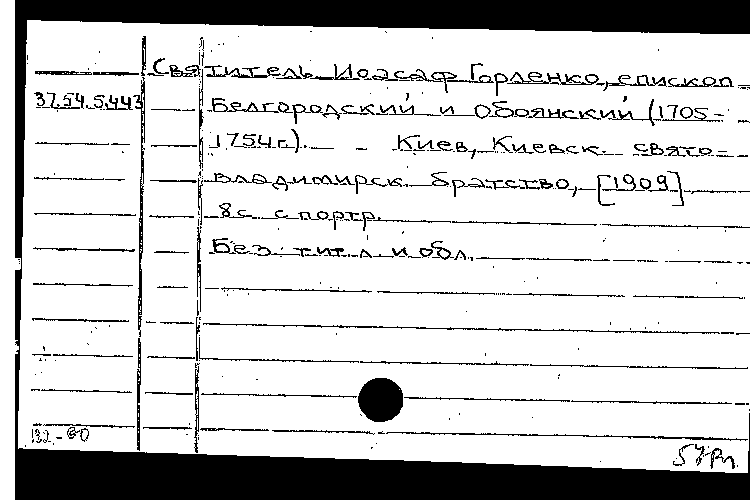 Святитель Иоасаф Горленко, епископ
37.54.5.443
Белгородский и Обоянский (1705-
1754г.). - Киев, Киевск. свято-
владимирск. братство, [1909]
8с. с портр.
Без тит. л. и обл.
132-80